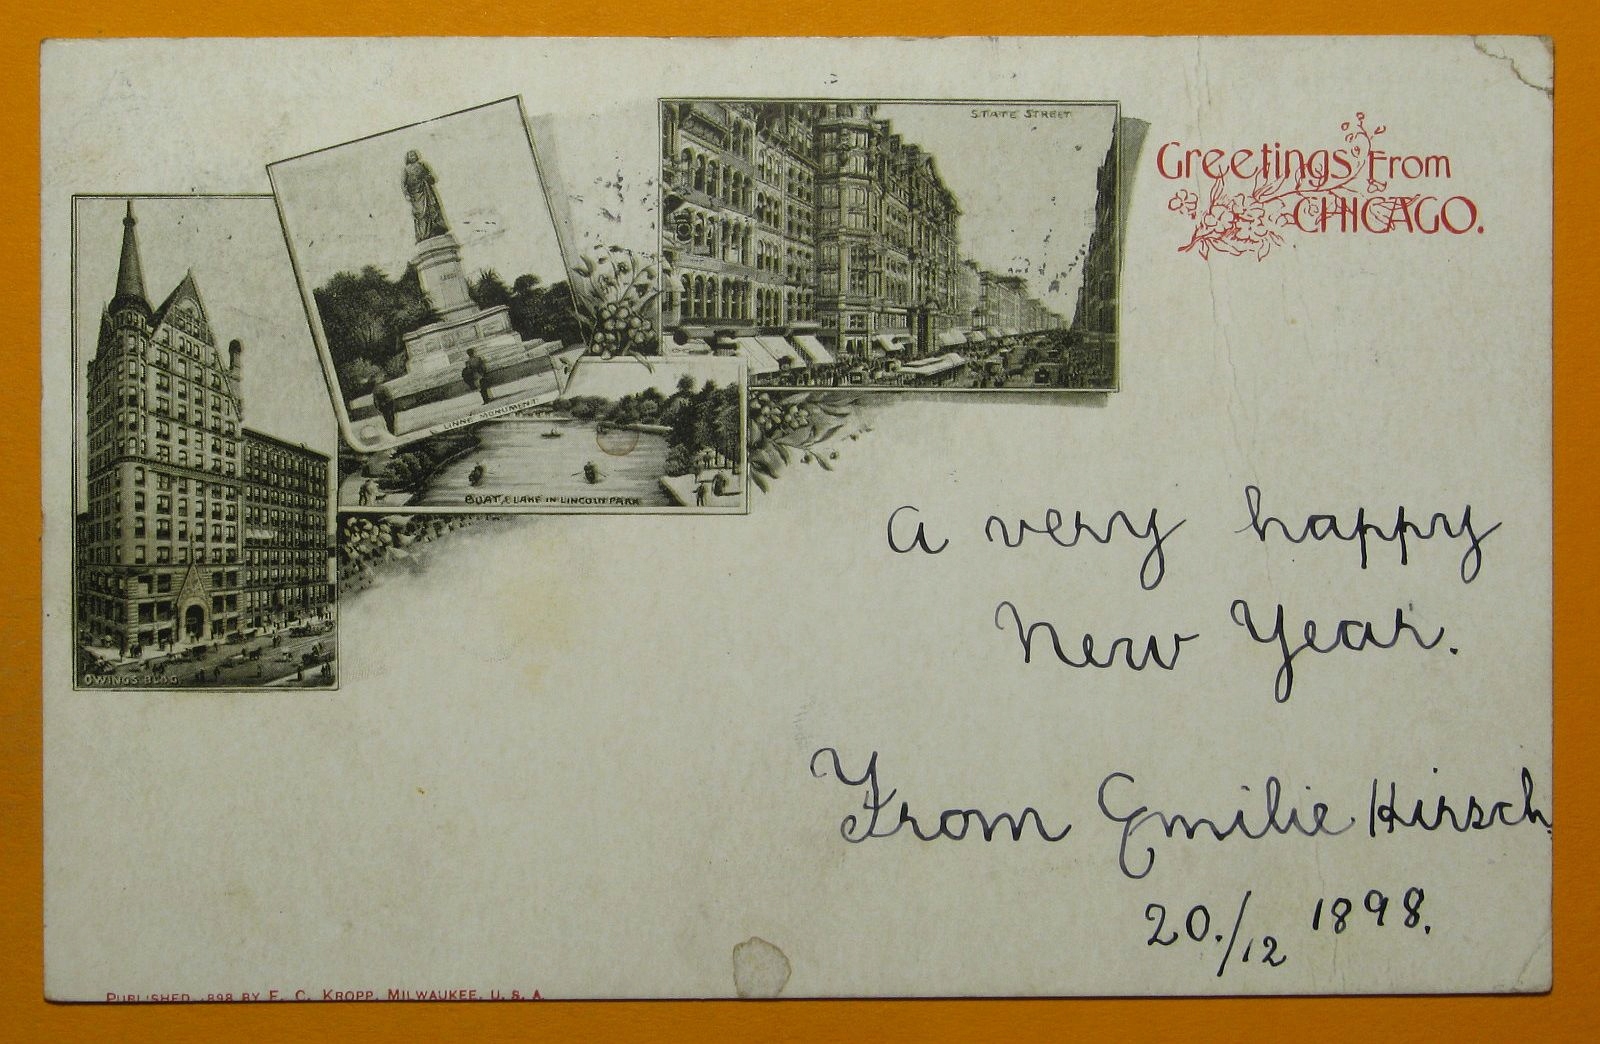 STATE STREET
Greetings From
CHICAGO.
LINNÉ
LINNÉ MONUMENT
BOAT & LAKE IN LINCOLN PARK
OWINGS BLDG.
A very happy
New Year.
From Emilie Hirsch
20./12 1898.
PUBLISHED 1898 BY E. C. KROPP, MILWAUKEE, U. S. A.